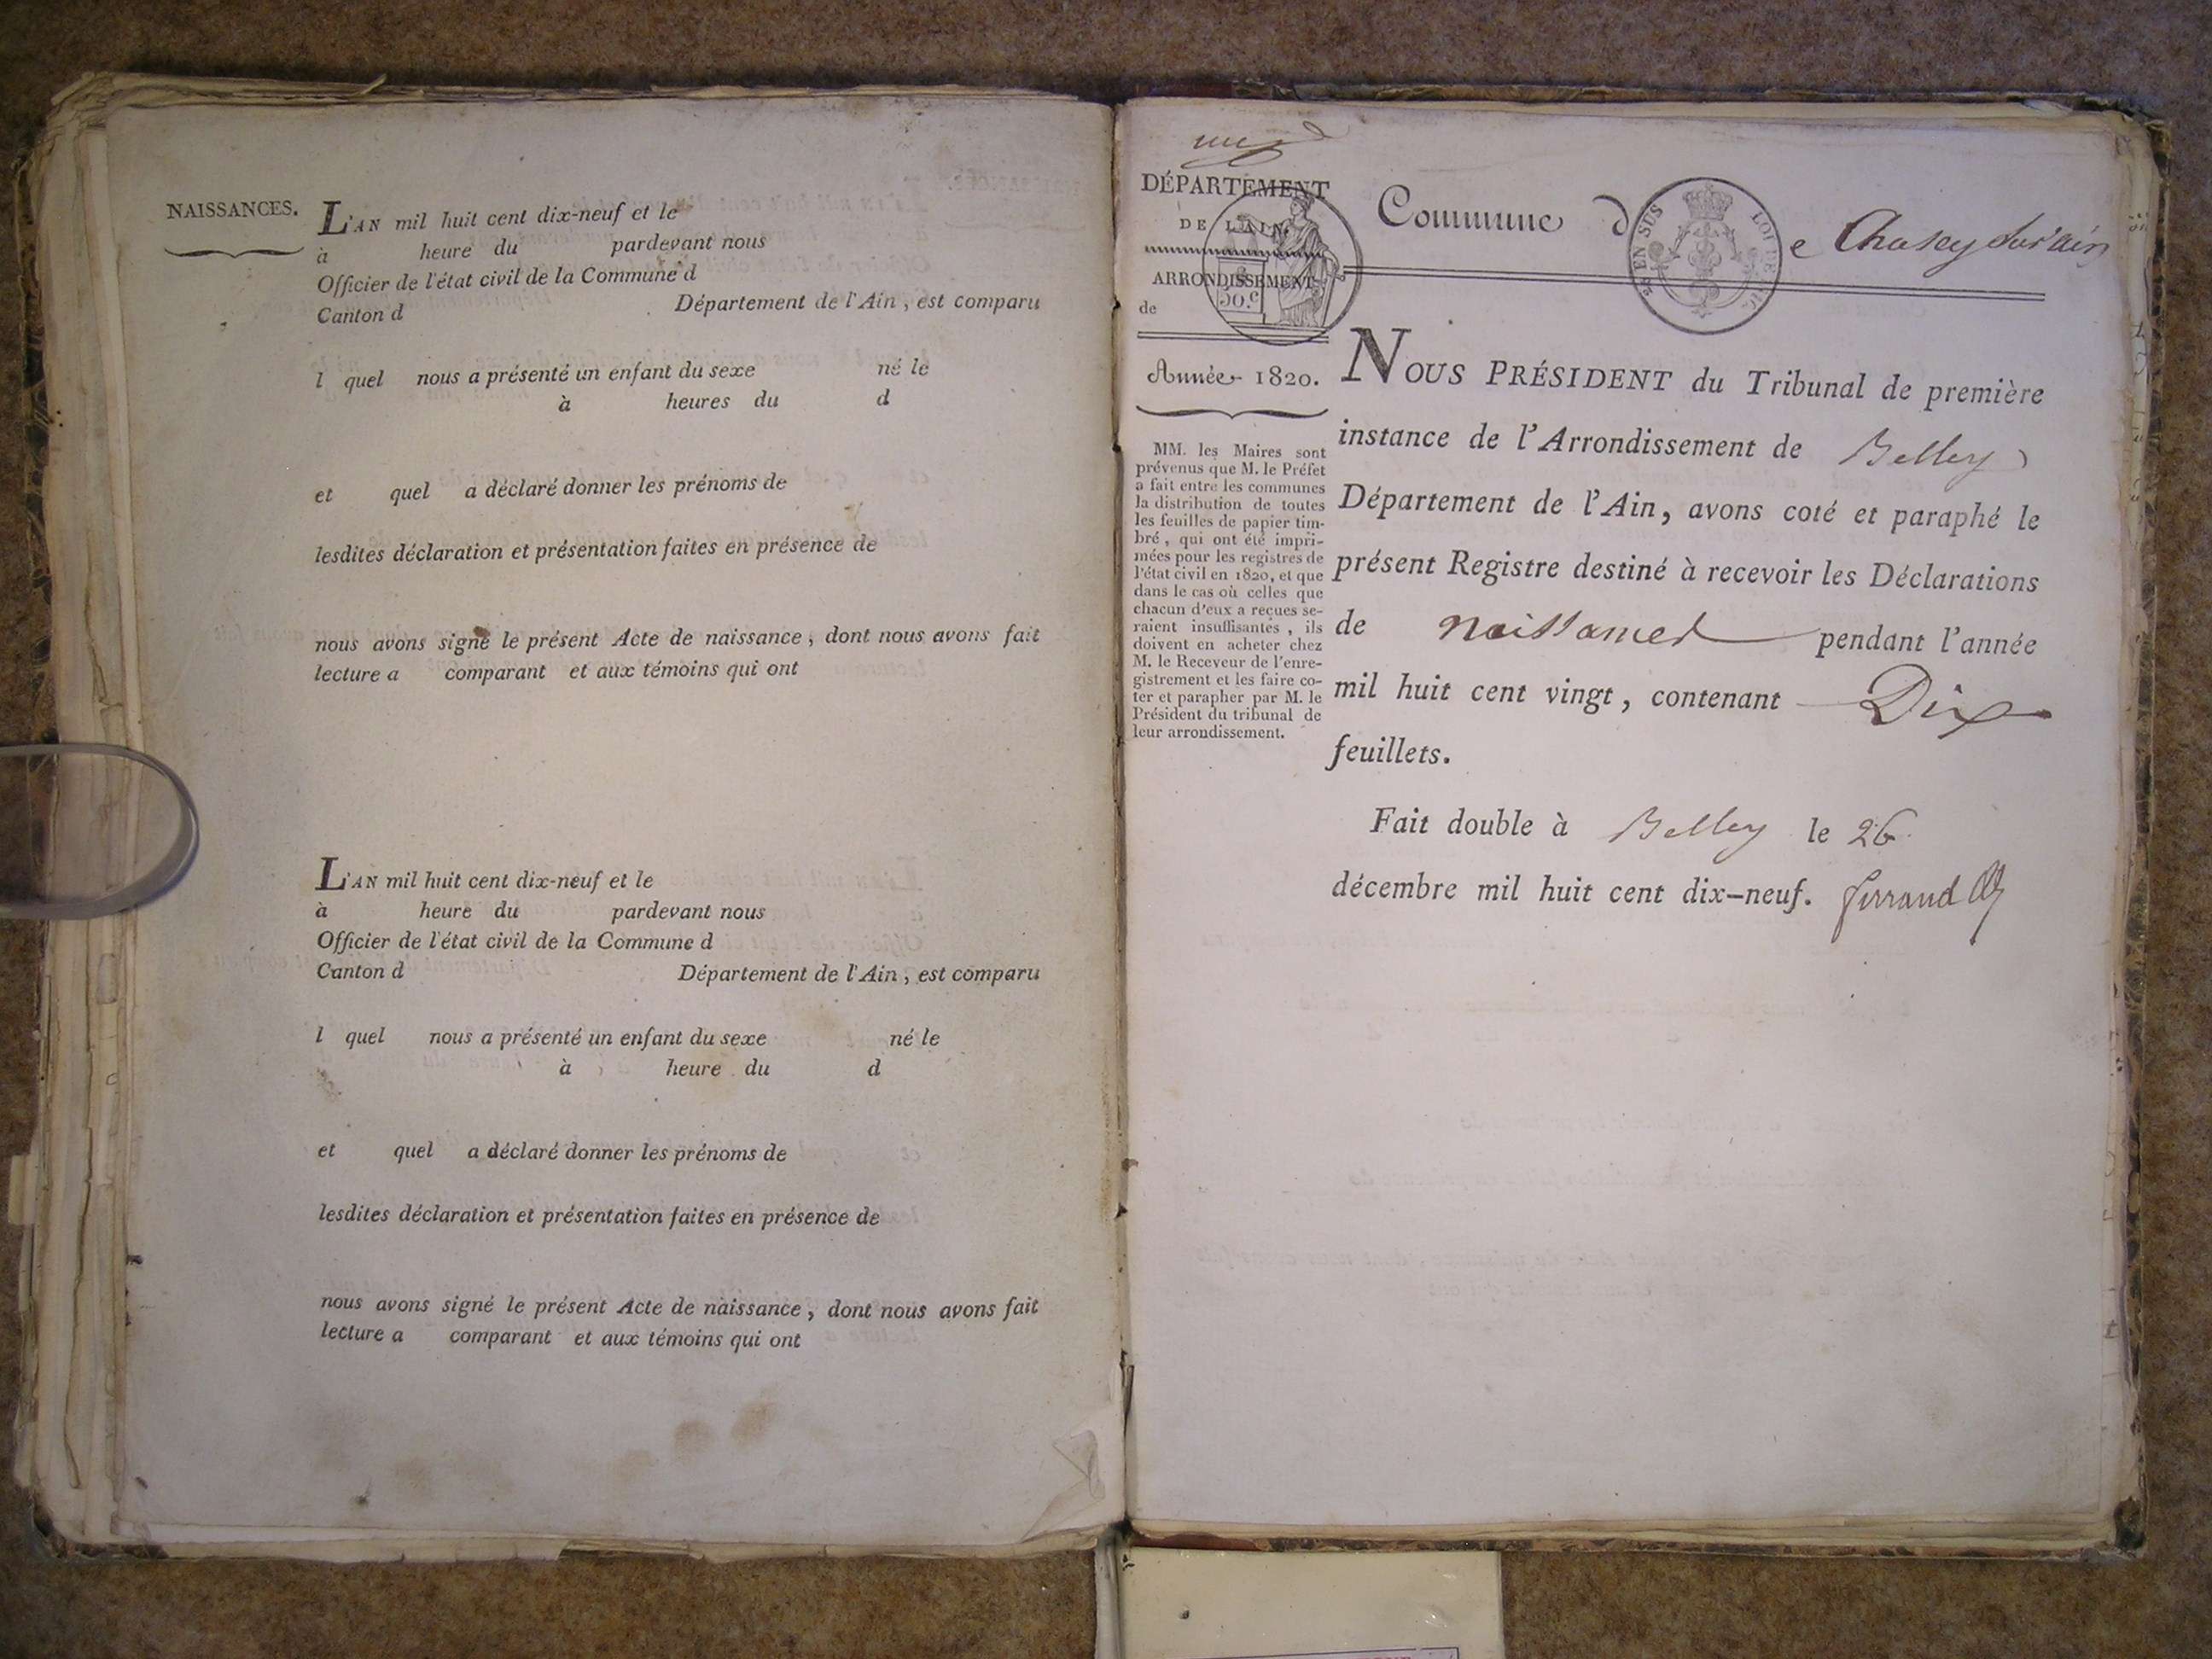 NAISSANCES.
L'AN mil huit cent dix-neuf et le
à heure du pardevant nous
Officier de l'état civil de la Commune d
Canton d Département de l'Ain, est comparu
l quel nous a présenté un enfant du sexe né le
à heures du d
et quel a déclaré donner les prénoms de
lesdites déclaration et présentation faites en présence de
nous avons signé le présent Acte de naissance, dont nous avons fait
lecture a comparant et aux témoins qui ont
L'AN mil huit cent dix-neuf et le
à heure du pardevant nous
Officier de l'état civil de la Commune d
Canton d Département de l'Ain, est comparu
l quel nous a présenté un enfant du sexe né le
à heure du d
et quel a déclaré donner les prénoms de
lesdites déclaration et présentation faites en présence de
nous avons signé le présent Acte de naissance, dont nous avons fait
lecture a comparant et aux témoins qui ont
DÉPARTEMENT
DE L'AIN.
ARRONDISSEMENT
de
50.c
Année 1820.
MM. les Maires sont
prévenus que M. le Préfet
a fait entre les communes
la distribution de toutes
les feuilles de papier tim-
bré, qui ont été impri-
mées pour les registres de
l'état civil en 1820, et que
dans le cas où celles que
chacun d'eux a reçues se-
raient insuffisantes, ils
doivent en acheter chez
M. le Receveur de l'enre-
gistrement et les faire co-
ter et parapher par M. le
Président du tribunal de
leur arrondissement.
Commune de Chasey sur ain
EN SUS LOI DE
NOUS PRÉSIDENT du Tribunal de première
instance de l'Arrondissement de Belley
Département de l'Ain, avons coté et paraphé le
présent Registre destiné à recevoir les Déclarations
de Naissances pendant l'année
mil huit cent vingt, contenant Dix
feuillets.
Fait double à Belley le 26
décembre mil huit cent dix-neuf. ferrand